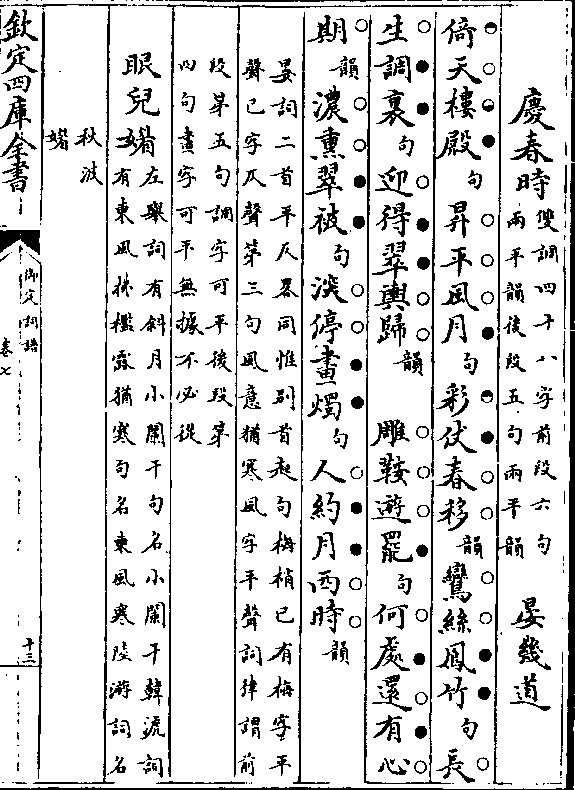 慶春時 雙調四十八字前段六句
兩平韻後段五句兩平韻 晏幾道
倚天樓殿句昇平風月句彩仗春移韻鸞絲鳳竹句長
生調裏句迎得翠輿歸韻 雕鞍遊罷句何處還有心
期韻濃熏翠被句淡停畫燭句人約月西時韻
晏詞二首平仄畧同惟别首起句梅梢已有梅字平
聲已字仄聲第三句風意猶寒風字平聲詞律謂前
段第五句調字可平後段第
四句畫字可平無據不必從
眼兒媚 左舉詞有斜月小闌干句名小闌干韓淲詞
有東風拂檻露猶寒句名東風寒陸游詞名
秋波
媚
欽定四庫全書
御定詞譜
卷七
十三